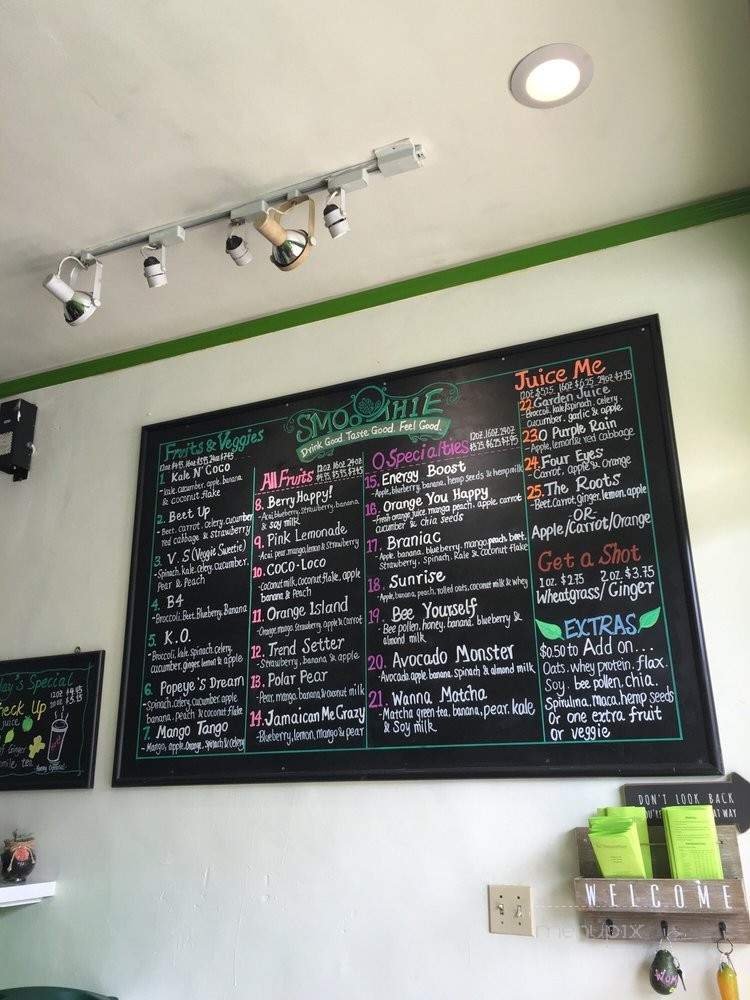 SMOOTHIE
Drink Good. Taste Good. Feel Good.
Fruits & Veggies
12oz $4.95 16oz $5.95 24oz $7.45
1. Kale N' Coco
- Kale, cucumber, apple, banana
& coconut flake
2. Beet Up
- Beet, carrot, celery, cucumber
red cabbage & strawberry
3. V.S (Veggie Sweetie)
- Spinach, kale, celery, cucumber,
pear & peach
4. B4
- Broccoli, Beet, Blueberry, Banana
5. K.O.
- Broccoli, kale, spinach, celery,
cucumber, ginger, lemon & apple
6. Popeye's Dream
- Spinach, celery, cucumber, apple
banana, peach & coconut flake
7. Mango Tango
- Mango, apple, orange, spinach & celery
All Fruits
12oz 16oz 24oz
8. Berry Happy!
- Acai, blueberry, strawberry, banana
& soy milk
9. Pink Lemonade
- Acai, pear, mango, lemon & strawberry
10. Coco-Loco
- Coconut milk, coconut flake, apple
banana & peach
11. Orange Island
- Orange, mango, strawberry, apple & carrot
12. Trend Setter
- Strawberry, banana & apple
13. Polar Pear
- Pear, mango, banana & coconut milk
14. Jamaican Me Crazy
- Blueberry, lemon, mango & pear
O Specialties
12oz 16oz 24oz
$5.25 $6.25 $7.95
15. Energy Boost
- Apple, blueberry, banana, hemp seeds & hemp milk
16. Orange You Happy
- Fresh orange juice, mango, peach, apple, carrot
cucumber & chia seeds
17. Braniac
- Apple, banana, blueberry, mango, peach, beet,
strawberry, spinach, kale & coconut flake
18. Sunrise
- Apple, banana, peach, rolled oats, coconut milk & whey
19. Bee Yourself
- Bee pollen, honey, banana, blueberry &
almond milk
20. Avocado Monster
- Avocado, apple, banana, spinach & almond milk
21. Wanna Matcha
- Matcha green tea, banana, pear, kale
& soy milk
Juice Me
12oz $5.25 16oz $6.25 24oz $7.95
22. Garden Juice
- Broccoli, kale/spinach, celery
cucumber, garlic & apple
23. O Purple Rain
- Apple, lemon & red cabbage
24. Four Eyes
- Carrot, apple & orange
25. The Roots
- Beet, carrot, ginger, lemon, apple
-OR-
Apple/Carrot/Orange
Get a Shot
1 oz. $2.75 2 oz. $3.75
Wheatgrass/Ginger
EXTRAS
$0.50 to Add on...
Oats, whey protein, flax,
Soy, bee pollen, chia,
Spirulina, maca, hemp seeds
or one extra fruit
or veggie
ay's Special
heck Up
juice
of Ginger
mile tea
12oz $4.95
16oz $5.95
DON'T LOOK BACK
YOU'RE AT WAY
WELCOME
menupix